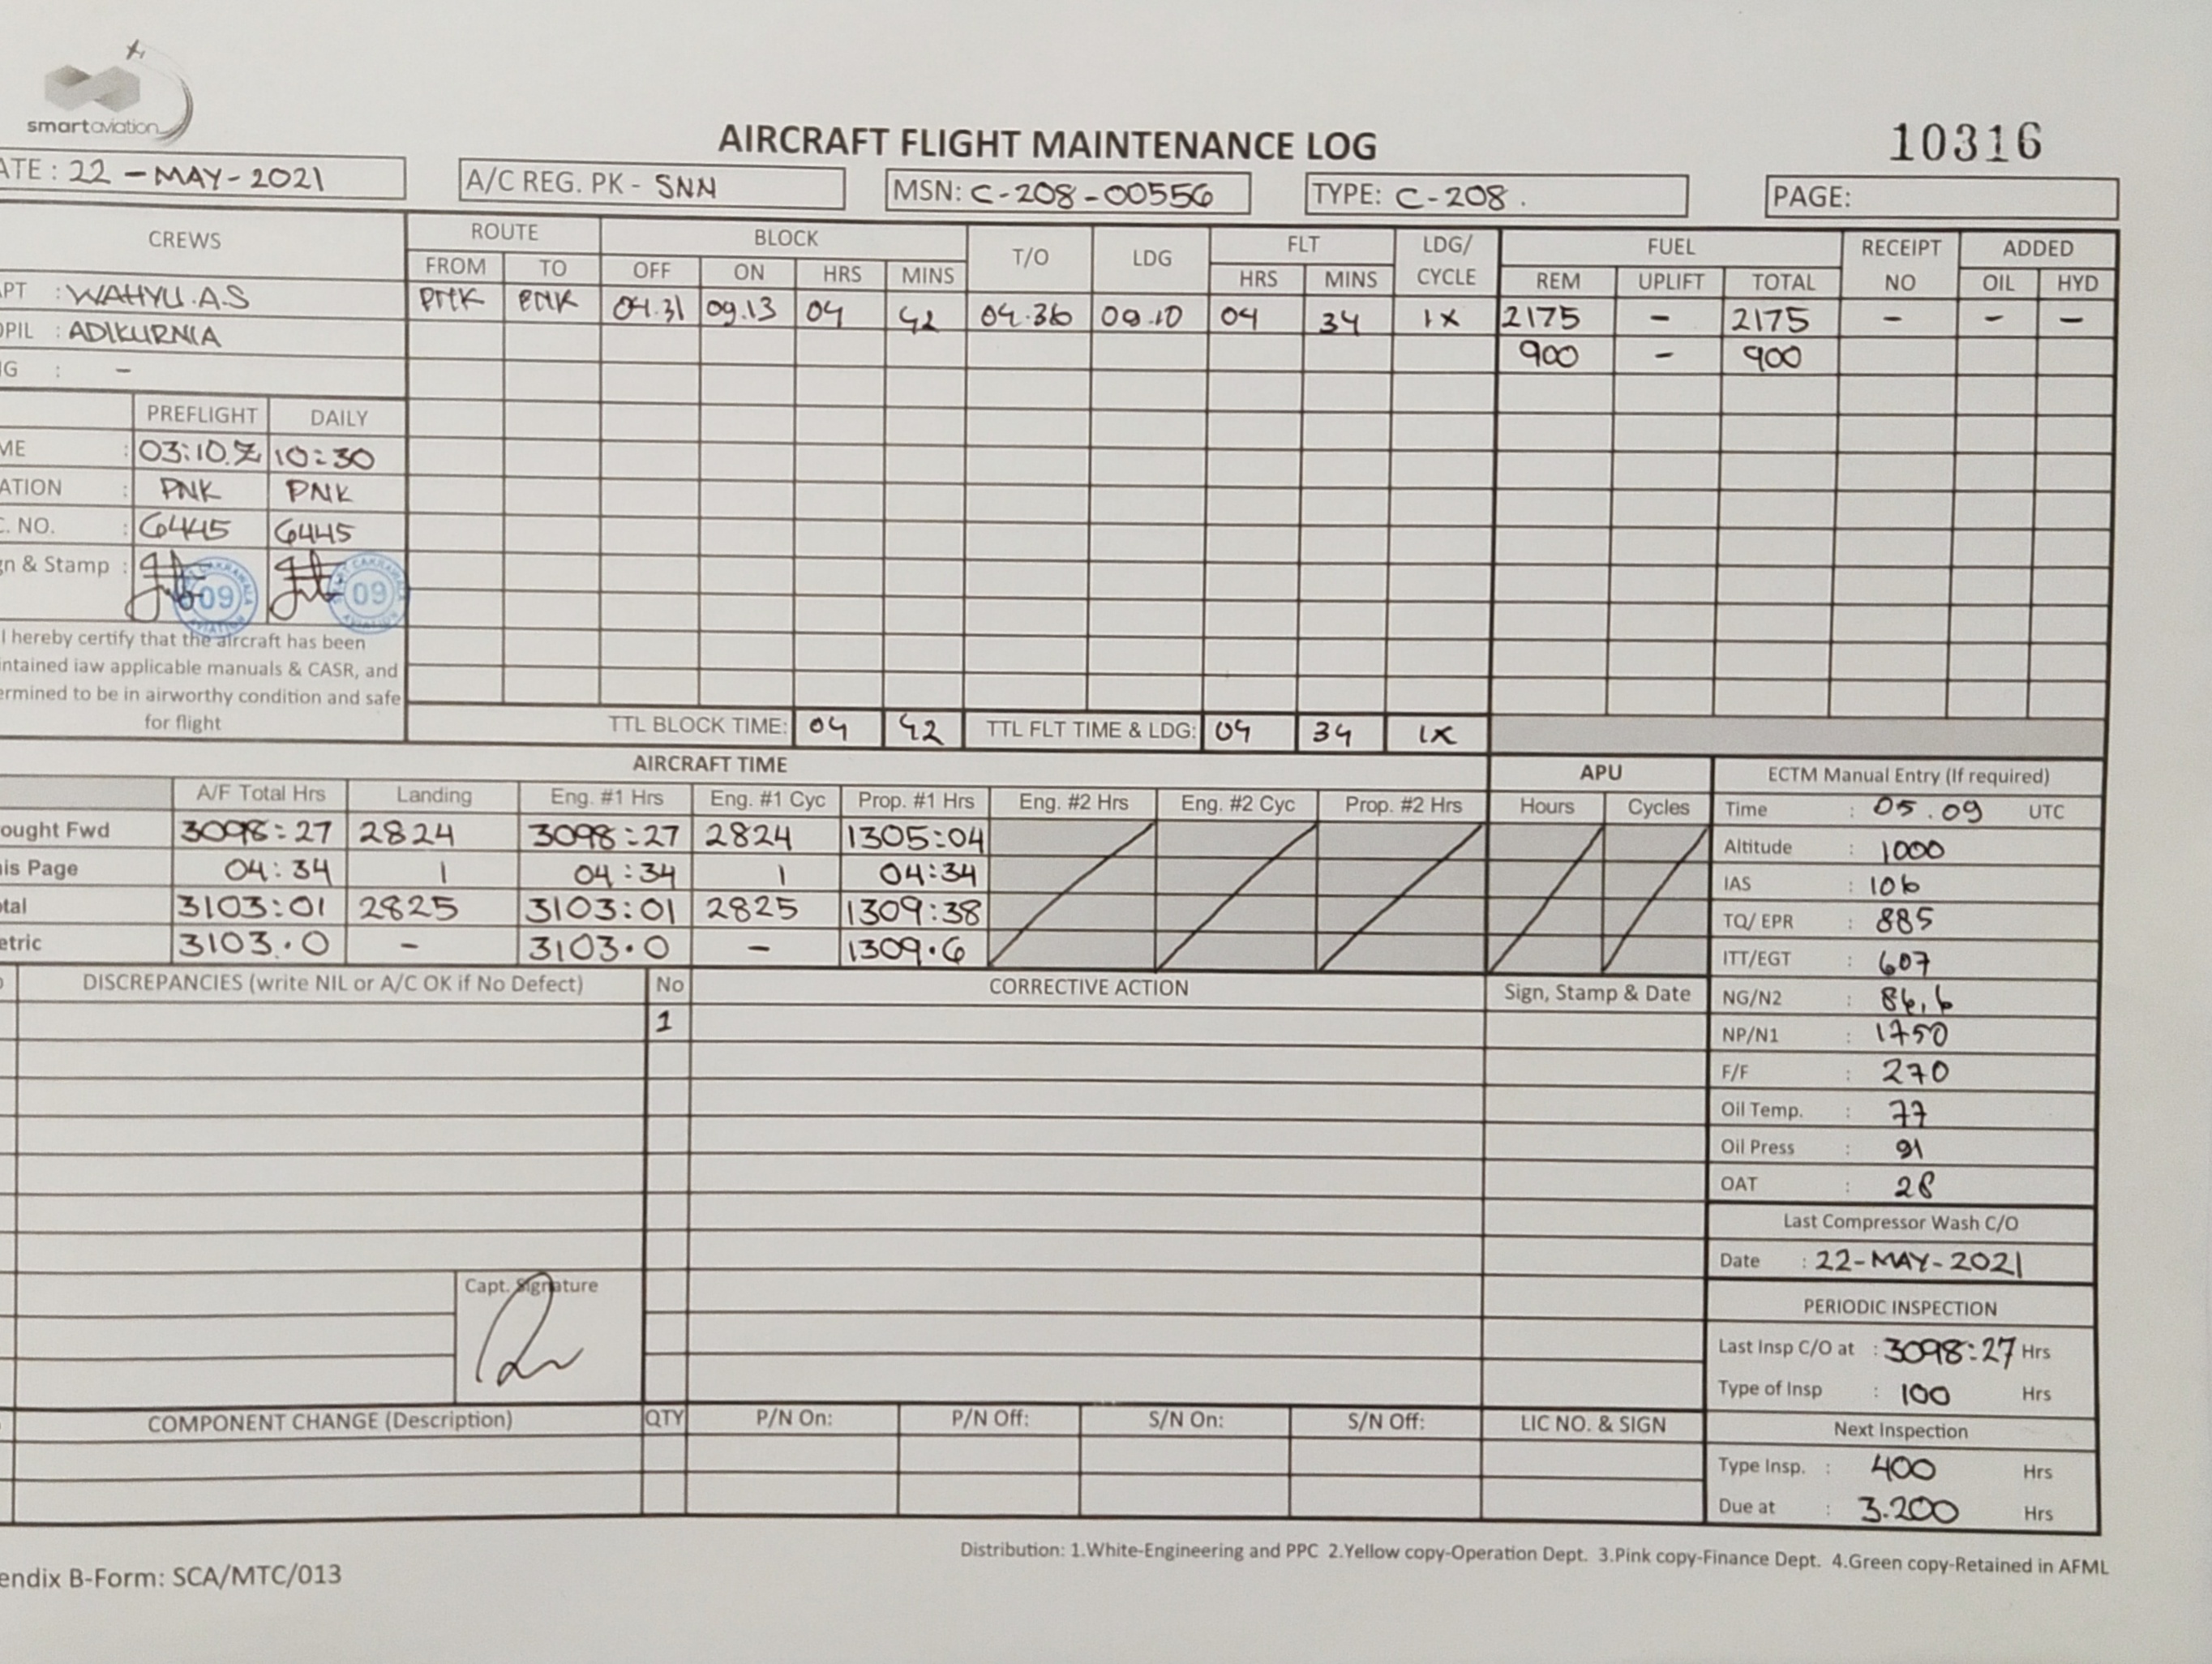 smartaviation
AIRCRAFT FLIGHT MAINTENANCE LOG
10316
ATE : 22 - MAY - 2021
A/C REG. PK - SNN
MSN: C-208-00556
TYPE: C-208 .
PAGE:
CREWS
ROUTE BLOCK T/O LDG FLT LDG/ CYCLE FUEL RECEIPT NO ADDED
FROM TO OFF ON HRS MINS HRS MINS REM UPLIFT TOTAL OIL HYD
PNK PNK 04.31 09.13 04 42 04.36 09.10 04 34 1X 2175 - 2175 - - -
900 - 900
APT : WAHYU.A.S
OPIL : ADIKURNIA
G : -
PREFLIGHT DAILY
ME : 03:10.Z 10:30
ATION : PNK PNK
C. NO. : 6445 6445
gn & Stamp :
09 CAKRAWALA AVIATION
09 CAKRAWALA AVIATION
I hereby certify that the aircraft has been
intained iaw applicable manuals & CASR, and
ermined to be in airworthy condition and safe
for flight
TTL BLOCK TIME: 04 42 TTL FLT TIME & LDG: 04 34 1X
AIRCRAFT TIME
APU
A/F Total Hrs Landing Eng. #1 Hrs Eng. #1 Cyc Prop. #1 Hrs Eng. #2 Hrs Eng. #2 Cyc Prop. #2 Hrs Hours Cycles
ought Fwd 3098:27 2824 3098:27 2824 1305:04
is Page 04:34 1 04:34 1 04:34
otal 3103:01 2825 3103:01 2825 1309:38
etric 3103.0 - 3103.0 - 1309.6
ECTM Manual Entry (If required)
Time : 05.09 UTC
Altitude : 1000
IAS : 106
TQ/ EPR : 885
ITT/EGT : 607
NG/N2 : 86,6
NP/N1 : 1750
F/F : 270
Oil Temp. : 77
Oil Press : 91
OAT : 28
Last Compressor Wash C/O
Date : 22-MAY-2021
PERIODIC INSPECTION
Last Insp C/O at : 3098:27 Hrs
Type of Insp : 100 Hrs
Next Inspection
Type Insp. : 400 Hrs
Due at : 3.200 Hrs
DISCREPANCIES (write NIL or A/C OK if No Defect) No CORRECTIVE ACTION Sign, Stamp & Date
1
Capt. Signature
COMPONENT CHANGE (Description) QTY P/N On: P/N Off: S/N On: S/N Off: LIC NO. & SIGN
Distribution: 1.White-Engineering and PPC 2.Yellow copy-Operation Dept. 3.Pink copy-Finance Dept. 4.Green copy-Retained in AFML
endix B-Form: SCA/MTC/013